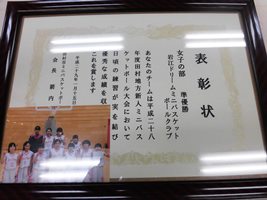 表彰状
女子の部　準優勝
岩江ドリームミニバスケット
ボールクラブ
あなたのチームは平成二十八
年度田村地方新人ミニバス
ケットボール大会において
日頃の練習が実を結び
優秀な成績を収
これを賞します
平成二十九年一月十五日
田村地方ミニバスケットボー
会長　箭内